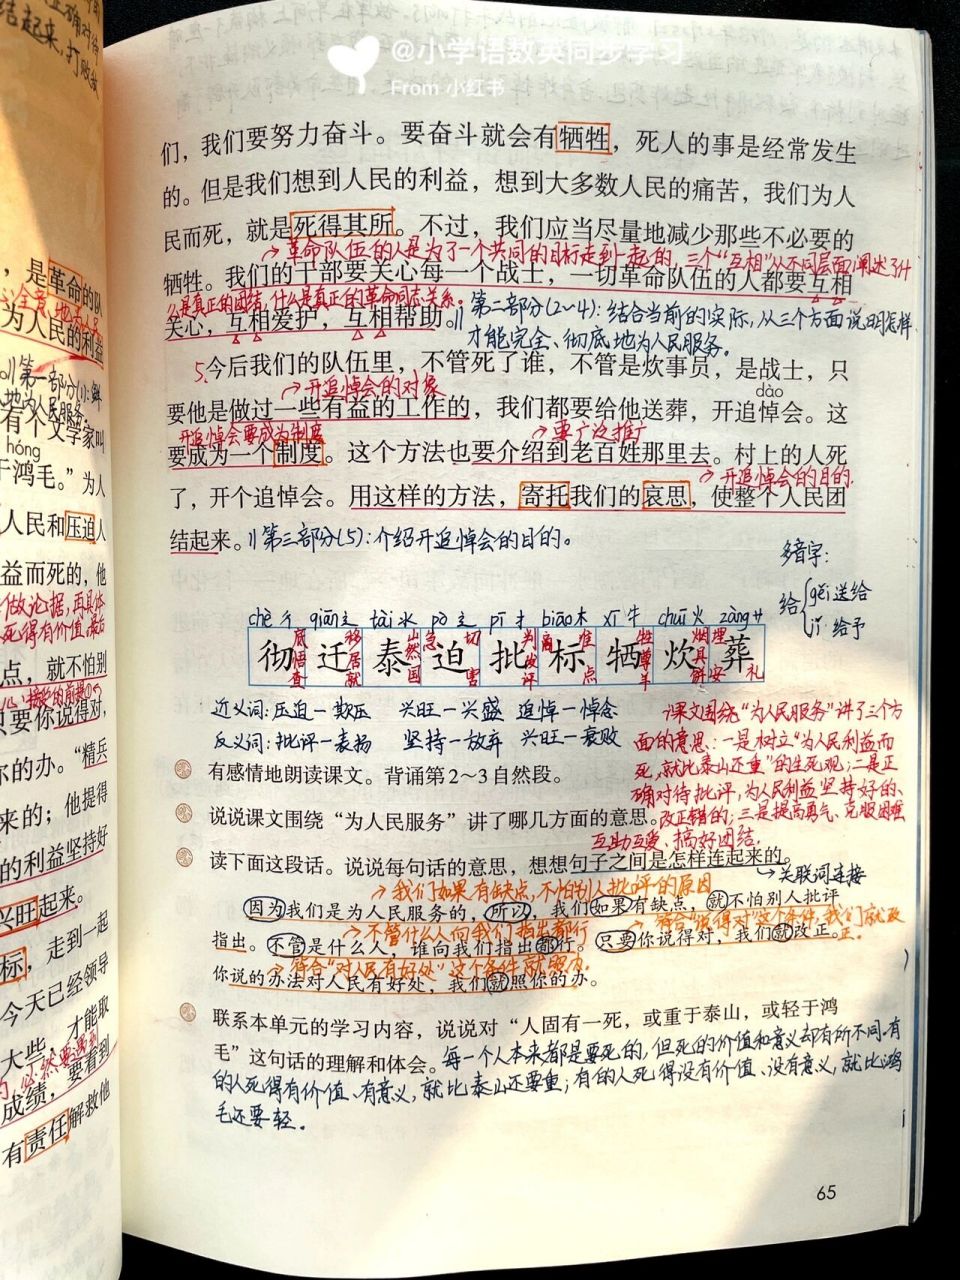 @小学语数英同步学习
From 小红书
们，我们要努力奋斗。要奋斗就会有牺牲，死人的事是经常发生
的。但是我们想到人民的利益，想到大多数人民的痛苦，我们为人
民而死，就是死得其所。不过，我们应当尽量地减少那些不必要的
革命队伍的人是为了一个共同的目标走到一起的，三个“互相”从不同层面阐述了什
牺牲。我们的干部要关心每一个战士，一切革命队伍的人都要互相
么是真正的团结，什么是真正的革命同志关系。
关心，互相爱护，互相帮助。
第二部分(2~4)：结合当前的实际，从三个方面说明怎样
才能完全、彻底地为人民服务。
5.今后我们的队伍里，不管死了谁，不管是炊事员，是战士，只
开追悼会的对象
dào
要他是做过一些有益的工作的，我们都要给他送葬，开追悼会。这
开追悼会要成为制度
要广泛推广
要成为一个制度。这个方法也要介绍到老百姓那里去。村上的人死
开追悼会的目的
了，开个追悼会。用这样的方法，寄托我们的哀思，使整个人民团
结起来。
第三部分(5)：介绍开追悼会的目的。
多音字：
给 gěi 送给
jǐ 给予
chè 彳 qiān 辶 tài 氺 pò 辶 pī 扌 biāo 木 xī 牛 chuī 火 zàng 艹
彻 迁 泰 迫 批 标 牺 炊 葬
近义词：压迫—欺压 兴旺—兴盛 追悼—悼念
反义词：批评—表扬 坚持—放弃 兴旺—衰败
课文围绕“为人民服务”讲了三个方
面的意思：一是树立“为人民利益而
死，就比泰山还重”的生死观；二是正
确对待批评，为人民利益坚持好的、
改正错的；三是提高勇气、克服困难
互助互爱、搞好团结。
有感情地朗读课文。背诵第2～3自然段。
说说课文围绕“为人民服务”讲了哪几方面的意思。
读下面这段话。说说每句话的意思，想想句子之间是怎样连起来的。
关联词连接
我们如果有缺点，不怕别人批评的原因
因为我们是为人民服务的，所以，我们如果有缺点，就不怕别人批评
不管什么人向我们指出都行
符合“说得对”这个条件，我们就改
正。
指出。不管是什么人，谁向我们指出都行。只要你说得对，我们就改正。
符合“对人民有好处”这个条件就照办.
你说的办法对人民有好处，我们就照你的办。
联系本单元的学习内容，说说对“人固有一死，或重于泰山，或轻于鸿
毛”这句话的理解和体会。
每一个人本来都是要死的，但死的价值和意义却有所不同。有
的人死得有价值、有意义，就比泰山还要重；有的人死得没有价值、没有意义，就比鸿
毛还要轻。
65
，是革命的队
为人民的利益
有个文学家叫
hóng
于鸿毛。”为人
人民和压迫人
益而死的，他
做论据，再具体
死得有价值，最后
点，就不怕别
只要你说得对，
你的办。“精兵
来的；他提得
的利益坚持好
兴旺起来。
标，走到一起
今天已经领导
大些，才能取
成绩，要看到
有责任解救他